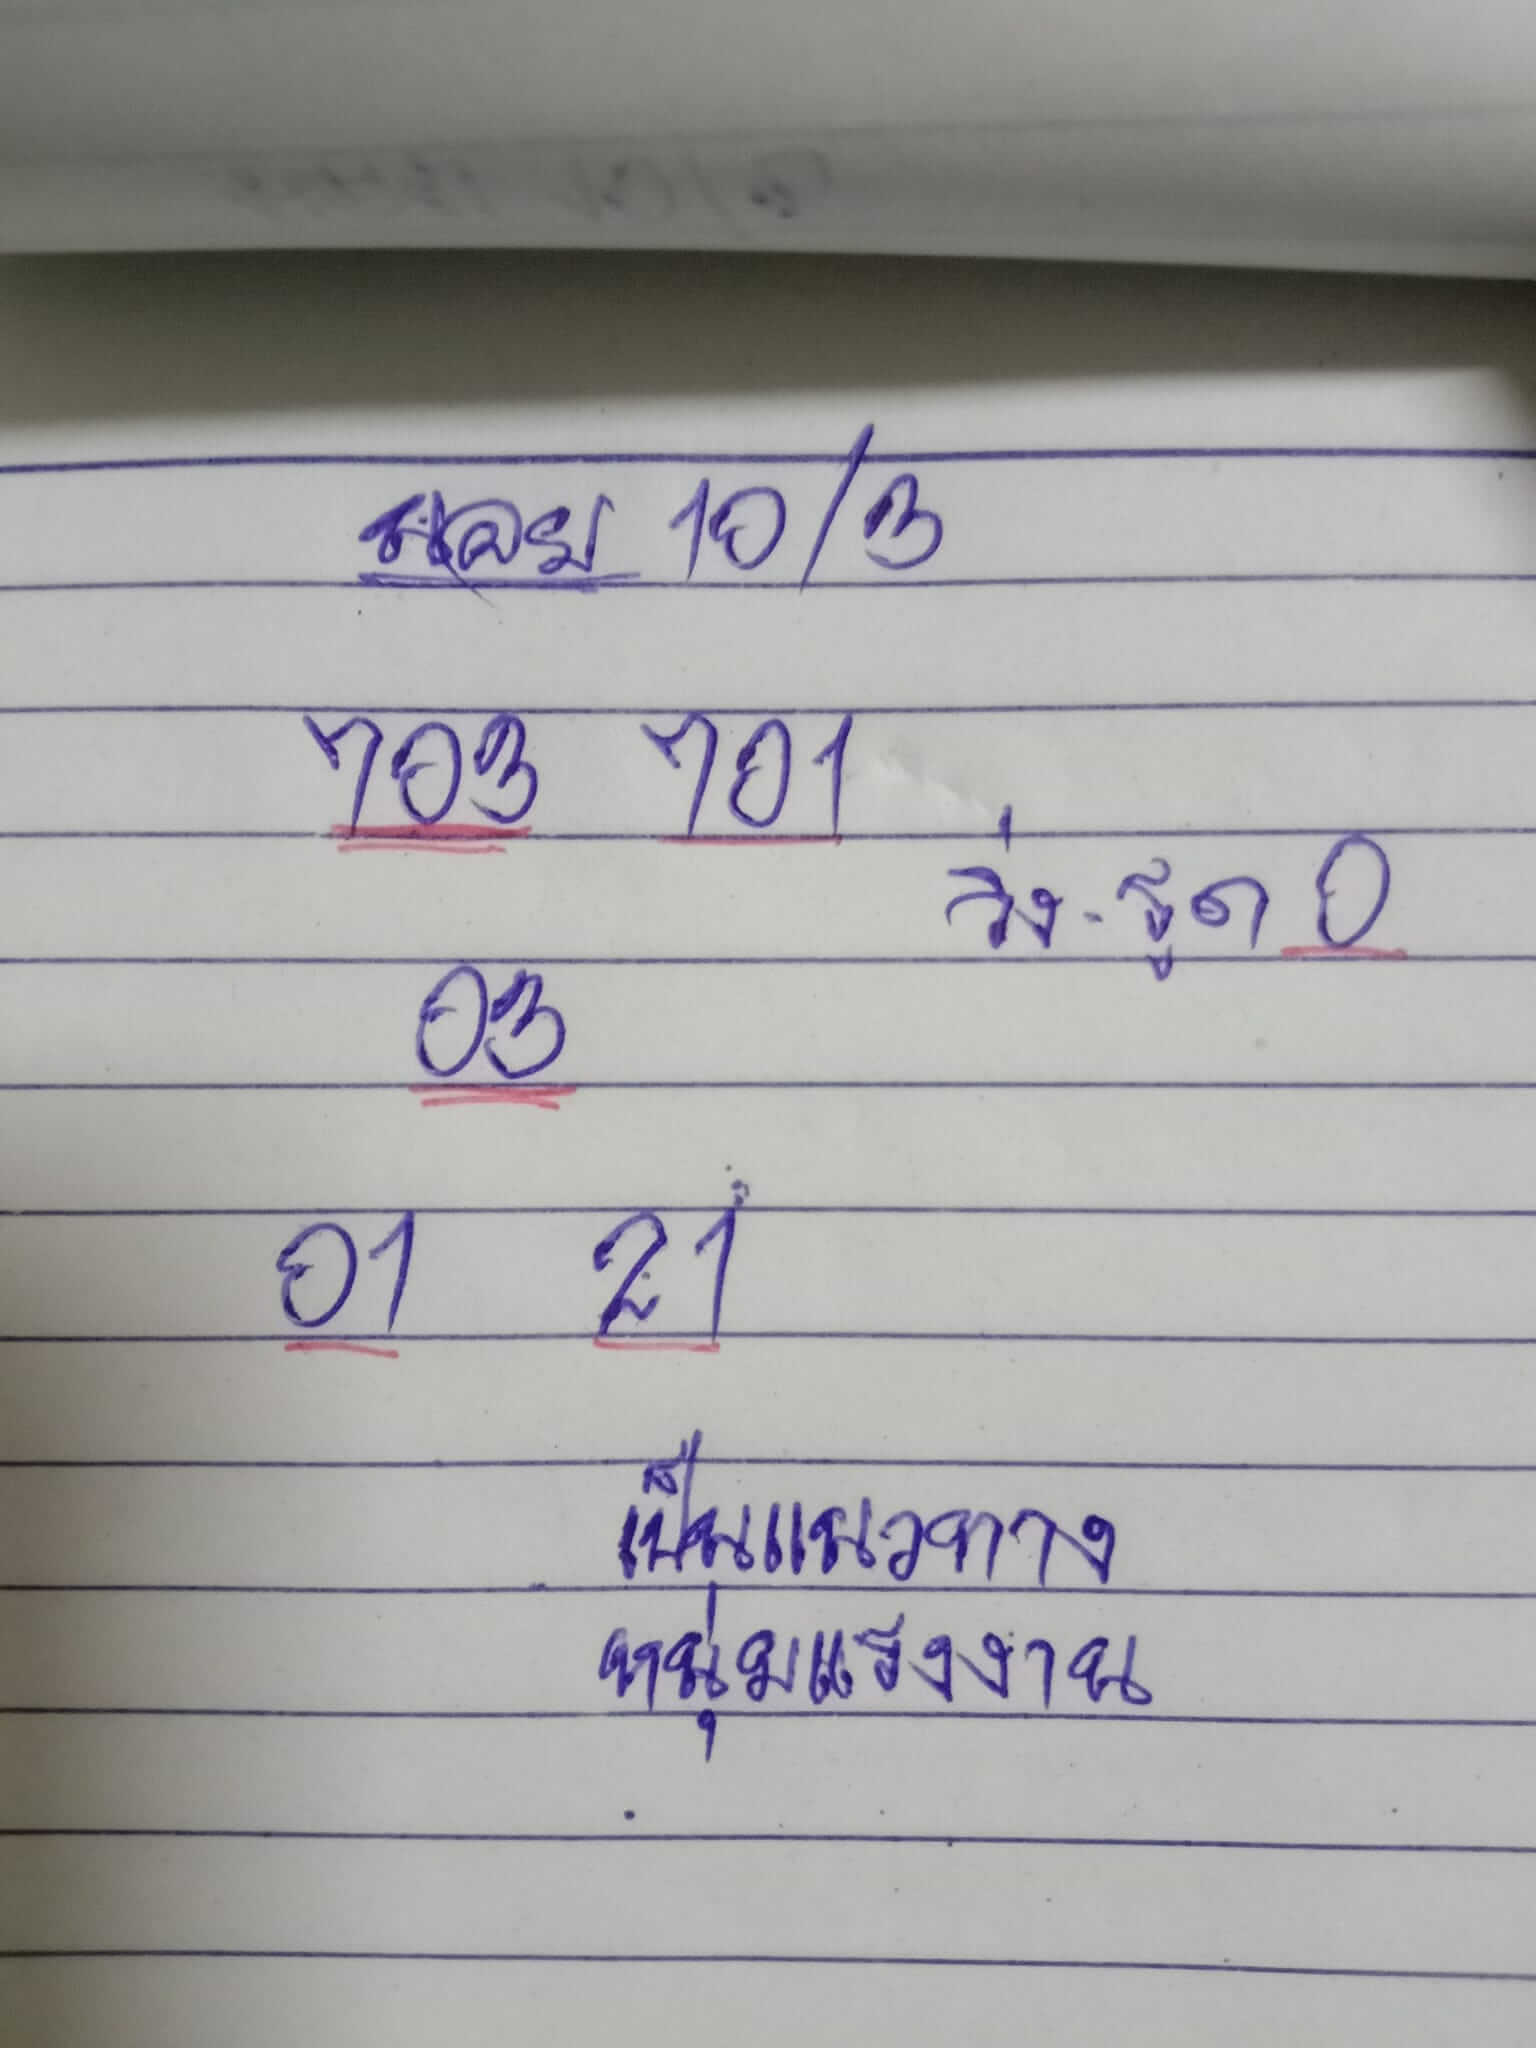 ฮานอย 10/3
703 701
วิ่ง-รูด 0
03
01 21
เป็นแนวทาง
หนุ่มแรงงาน